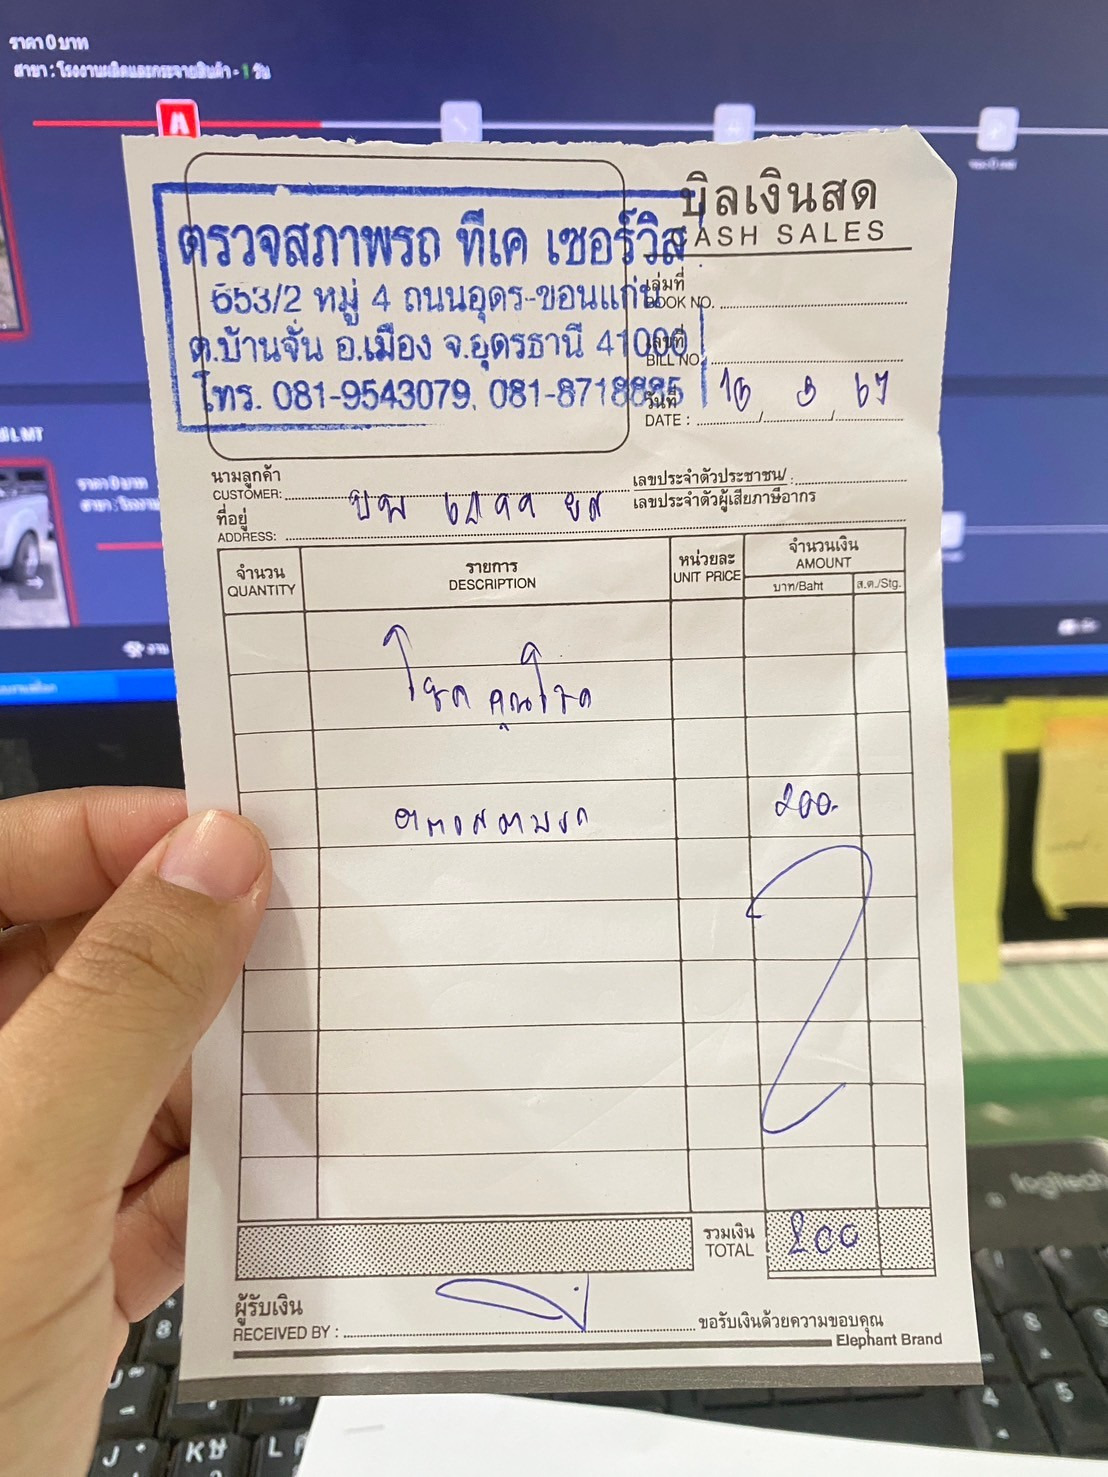 ราคา 0 บาท
สาขา : โรงงานผลิตและกระจายสินค้า - 1 วัน
บิลเงินสด
CASH SALES
ตรวจสภาพรถ ทีเค เซอร์วิส
553/2 หมู่ 4 ถนนอุดร-ขอนแก่น
ต.บ้านจั่น อ.เมือง จ.อุดรธานี 41000
โทร. 081-9543079, 081-8718885
เล่มที่
BOOK NO.
เลขที่
BILL NO.
วันที่
DATE : 16 / 3 / 67
นามลูกค้า
CUSTOMER:
เลขประจำตัวประชาชน/
เลขประจำตัวผู้เสียภาษีอากร
ที่อยู่
ADDRESS:
จำนวน
QUANTITY
รายการ
DESCRIPTION
หน่วยละ
UNIT PRICE
จำนวนเงิน
AMOUNT
บาท/Baht
ส.ต./Stg.
ตรวจสภาพรถ 200.-
รวมเงิน
TOTAL
200
ผู้รับเงิน
RECEIVED BY :
ขอรับเงินด้วยความขอบคุณ
Elephant Brand
ราคา 0 บาท
L MT
งาน
logitech